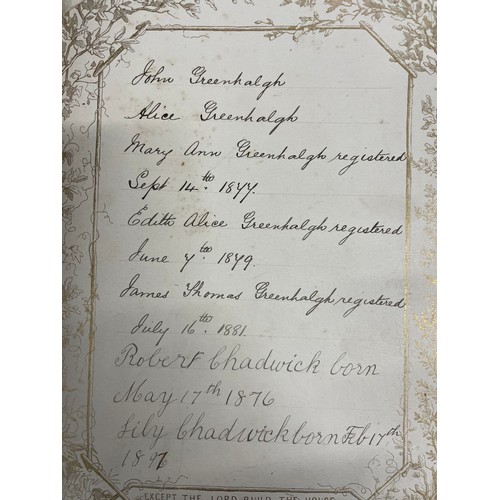 John Greenhalgh
Alice Greenhalgh
Mary Ann Greenhalgh registered
Sept 14th. 1877.
Edith Alice Greenhalgh registered
June 7th. 1879.
James Thomas Greenhalgh registered
July 16th. 1881.
Robert Chadwick born
May 17th 1876
Lily Chadwick born Feb 17th
1897
EXCEPT THE LORD BUILD THE HOUSE